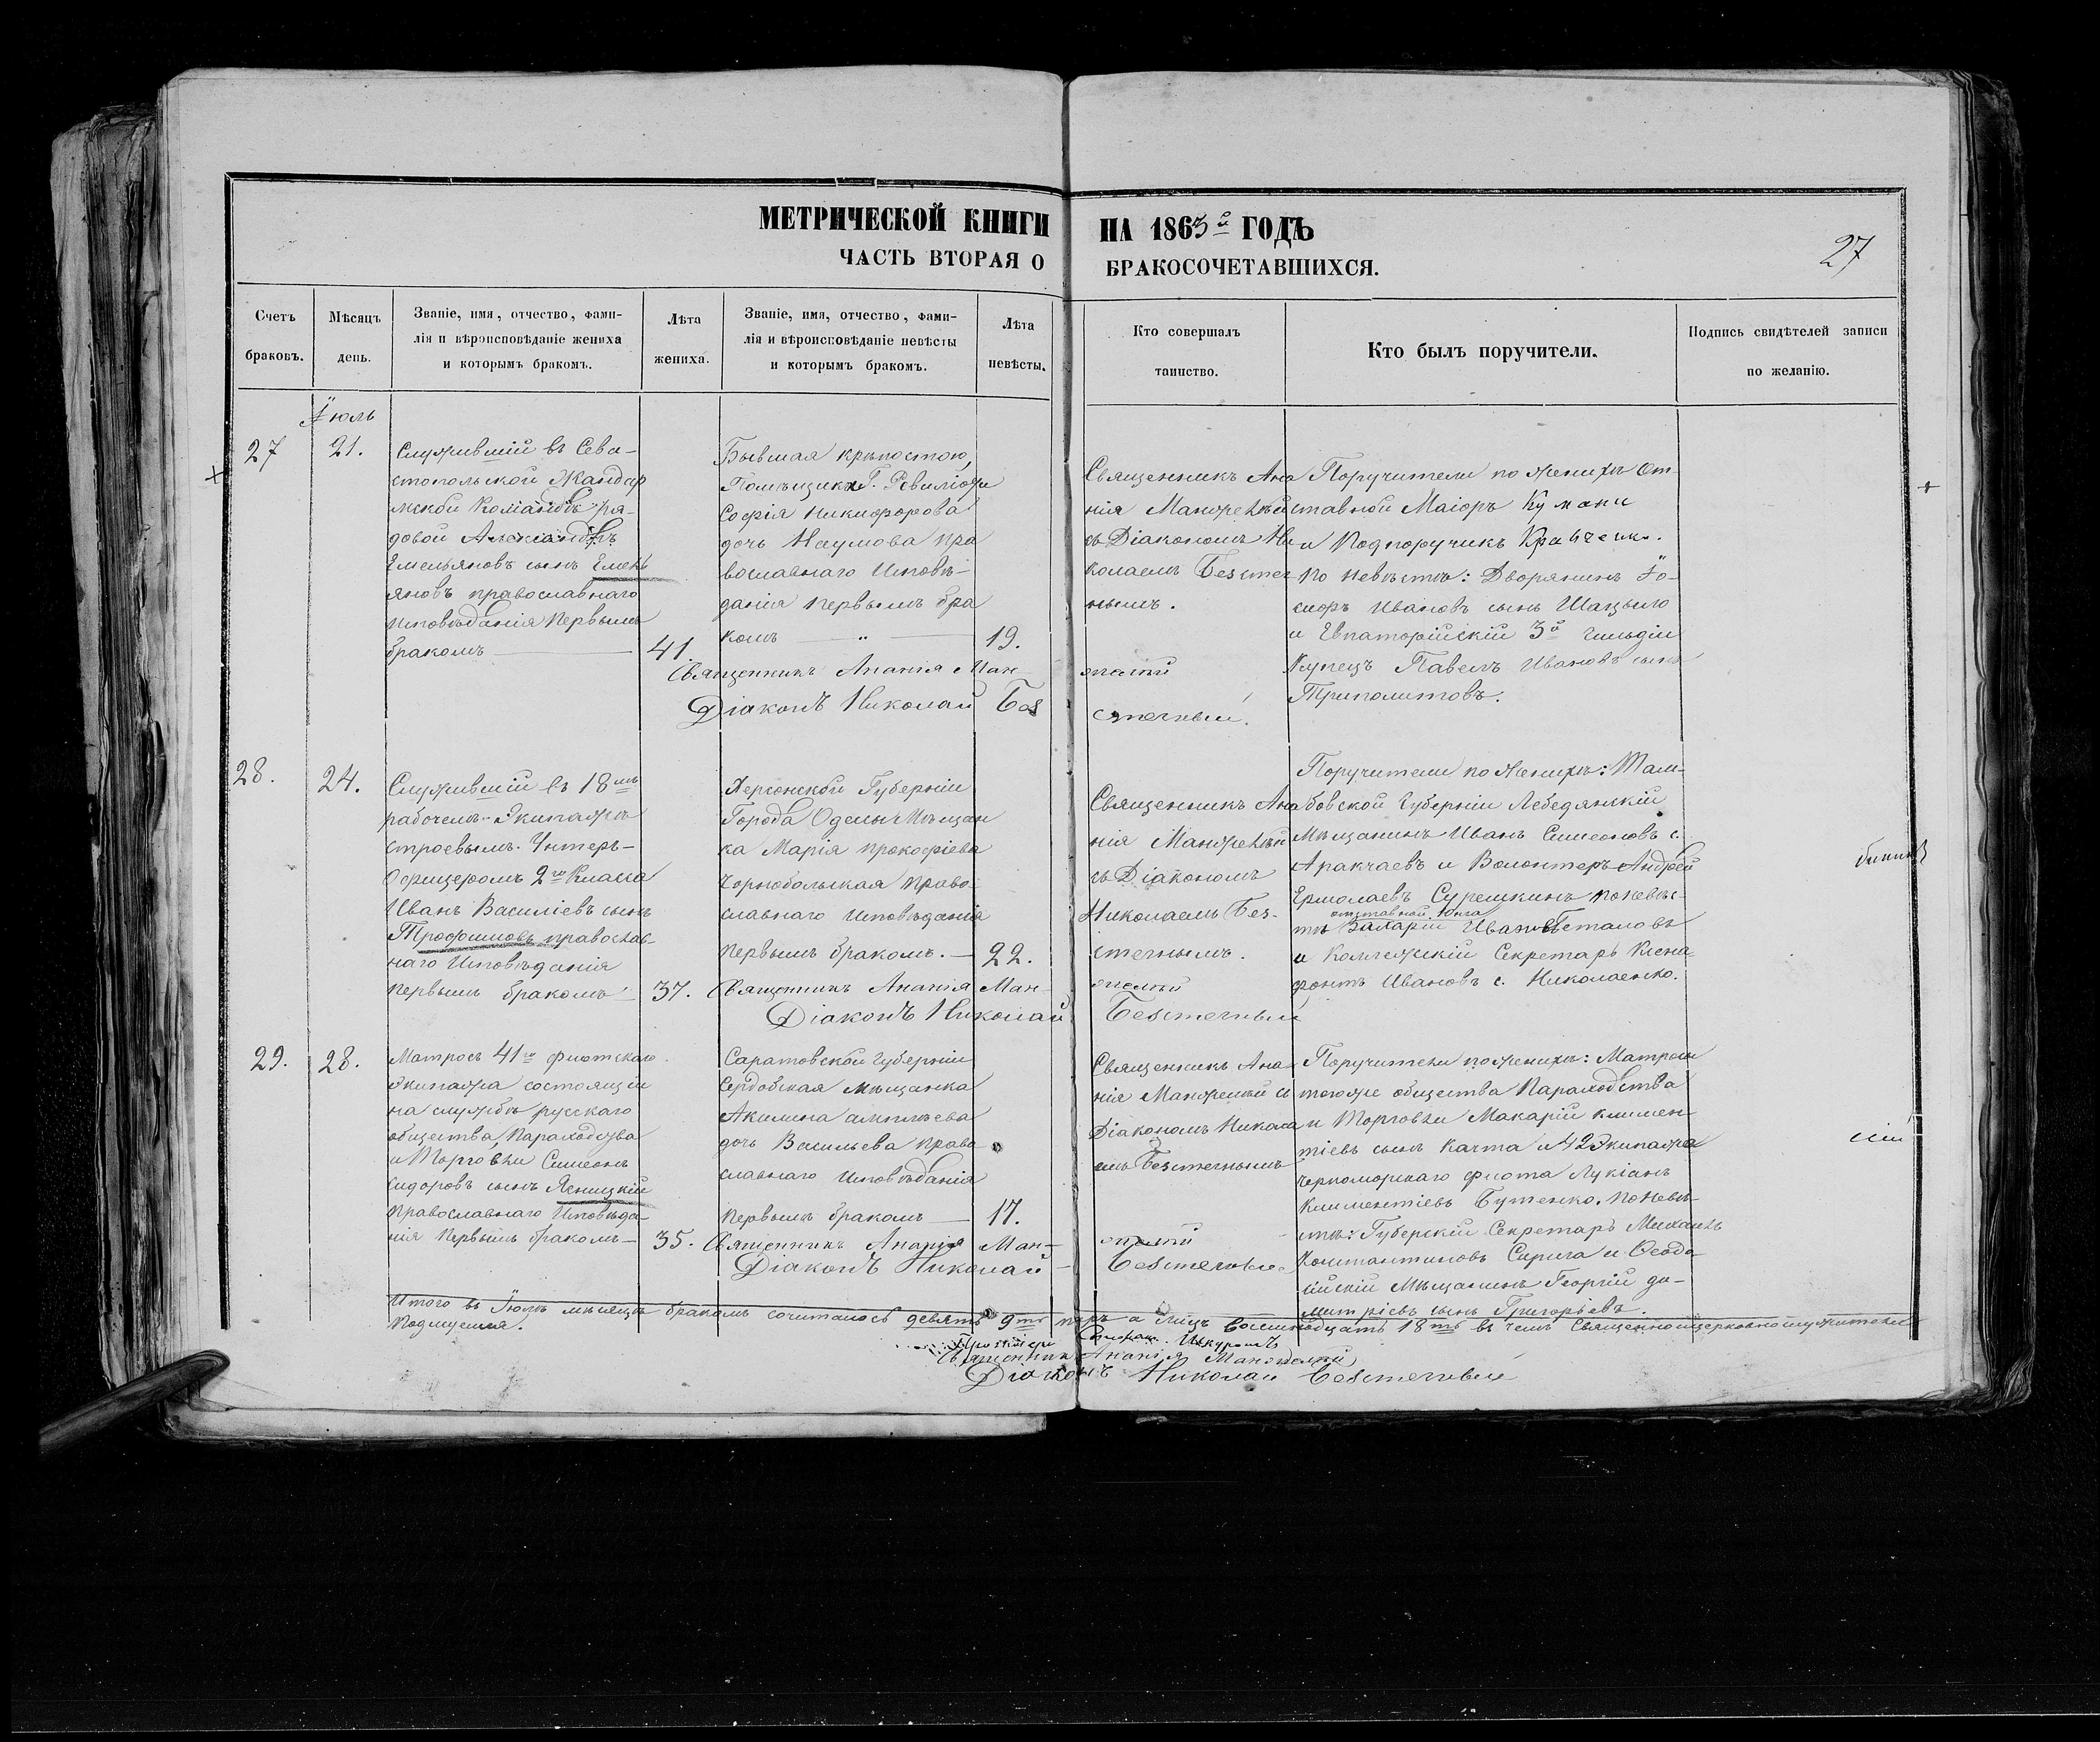 МЕТРИЧЕСКОЙ КНИГИ НА 1863й ГОДЪ
ЧАСТЬ ВТОРАЯ О БРАКОСОЧЕТАВШИХСЯ.
27
Счетъ браковъ.
Мѣсяцъ день.
Званіе, имя, отчество, фами-
лія и вѣроисповѣданіе жениха
и которымъ бракомъ.
Лѣта жениха.
Званіе, имя, отчество, фами-
лія и вѣроисповѣданіе невѣсты
и которымъ бракомъ.
Лѣта невѣсты.
Кто совершалъ
таинство.
Кто былъ поручители.
Подпись свидѣтелей записи
по желанію.
Іюль
27
21.
Служившій въ Сева-
стопольской Жандар
мской Командѣ ря-
довой Александръ
Емельяновъ сынъ Емель
яновъ православнаго
исповѣданія первымъ
бракомъ
41.
Бывшая крѣпостною
Помѣщика Г. Ревиліоти
Софія Никифорова
дочь Наумова пра
вославнаго исповѣ-
данія первымъ бра
комъ
19.
Священникъ Ана
нія Манжелѣй
съ Діакономъ Ни
колаемъ Безтеч
нымъ.
Поручители по женихѣ От-
ставной Маіоръ Кумани
и Подпоручикъ Кравченко.
По невѣстѣ: Дворянинъ Іо-
сифъ Ивановъ сынъ Шацыло
и Евпаторійскій 3й гильдіи
Купецъ Павелъ Ивановъ сынъ
Триполитовъ.
Священникъ Ананія Манжелѣй
Діаконъ Николай Безтечный.
28.
24.
Служившій въ 18мъ
рабочемъ Экипажѣ
строевымъ Унтеръ-
Офицеромъ 2го Класса
Иванъ Василіевъ сынъ
Трофимовъ православ-
наго исповѣданія
первымъ бракомъ
37.
Херсонской Губерніи
Города Одессы Мѣщан
ка Марія Прокофіева
Чорнобольская право-
славнаго исповѣданія
первымъ бракомъ.
22.
Священникъ Ана
нія Манжелѣй
съ Діакономъ
Николаемъ Без-
течнымъ.
Поручители по женихѣ: Там-
бовской Губерніи Лебедянскій
Мѣщанинъ Иванъ Симеоновъ с.
Аракчаевъ и Волонтеръ Андрей
Ермолаевъ Сурешкинъ по невѣс-
отставной Юнга
тѣ Захарій Ивановъ Беталовъ
и Коллежскій Секретарь Ксено
фонтъ Ивановъ с. Николаенко.
Священникъ Ананія Манжелѣй
Діаконъ Николай Безтечный
29.
28.
Матросъ 41го флотскаго
Экипажа состоящій
на службѣ русскаго
общества Пароходства
и Торговли Симеонъ
Сидоровъ сынъ Ясницкій
православнаго исповѣда-
нія первымъ бракомъ
35.
Саратовской Губерніи
Сердобская Мѣщанка
Акилина
дочь Васильева право
славнаго исповѣданія
первымъ бракомъ
17.
Священникъ Ана
нія Манжелѣй и
Діакономъ Никола
емъ Безтечнымъ
Поручители по женихѣ: Матросы
тогоже общества Пароходства
и Торговли Макарій Климен-
тіевъ сынъ Качта и 42 Экипажа
Черноморскаго флота Лукіанъ
Климентіевъ Бутенко. По невѣ-
стѣ: Губерскій Секретарь Михаилъ
Константиновъ Сирига и Ѳеодо-
сійскій Мѣщанинъ Георгій Ди-
митріевъ сынъ Григорьевъ.
Священникъ Ананія Манжелѣй
Діаконъ Николай Безтечный
Итого въ Іюлѣ мѣсяцѣ бракомъ сочиталось девять 9ть паръ а лицъ восимнадцать 18ть въ чемъ Священноицерковнослужители
Подписуемся.
Протоіерей
Священникъ Ананія Манжелѣй
Діаконъ Николай Безтечный